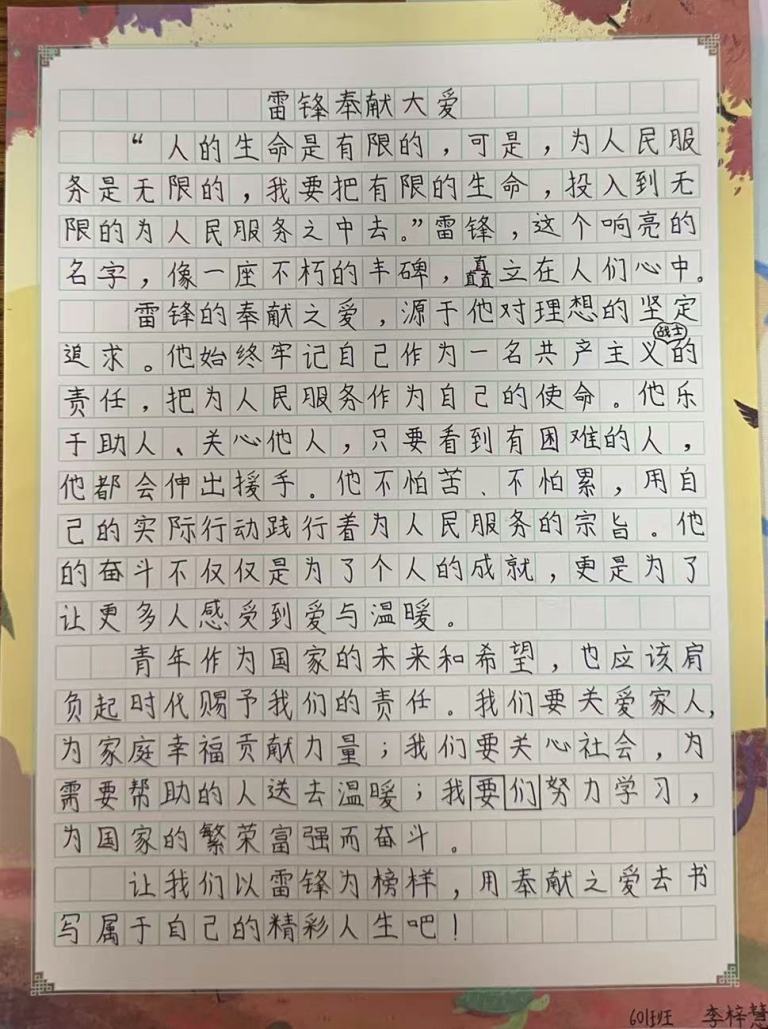 雷锋奉献大爱
“人的生命是有限的，可是，为人民服
务是无限的，我要把有限的生命，投入到无
限的为人民服务之中去。”雷锋，这个响亮的
名字，像一座不朽的丰碑，矗立在人们心中。
雷锋的奉献之爱，源于他对理想的坚定
追求。他始终牢记自己作为一名共产主义战士的
责任，把为人民服务作为自己的使命。他乐
于助人、关心他人，只要看到有困难的人，
他都会伸出援手。他不怕苦、不怕累，用自
己的实际行动践行着为人民服务的宗旨。他
的奋斗不仅仅是为了个人的成就，更是为了
让更多人感受到爱与温暖。
青年作为国家的未来和希望，也应该肩
负起时代赐予我们的责任。我们要关爱家人，
为家庭幸福贡献力量；我们要关心社会，为
需要帮助的人送去温暖；我要们努力学习，
为国家的繁荣富强而奋斗。
让我们以雷锋为榜样，用奉献之爱去书
写属于自己的精彩人生吧！
601班 李梓慧